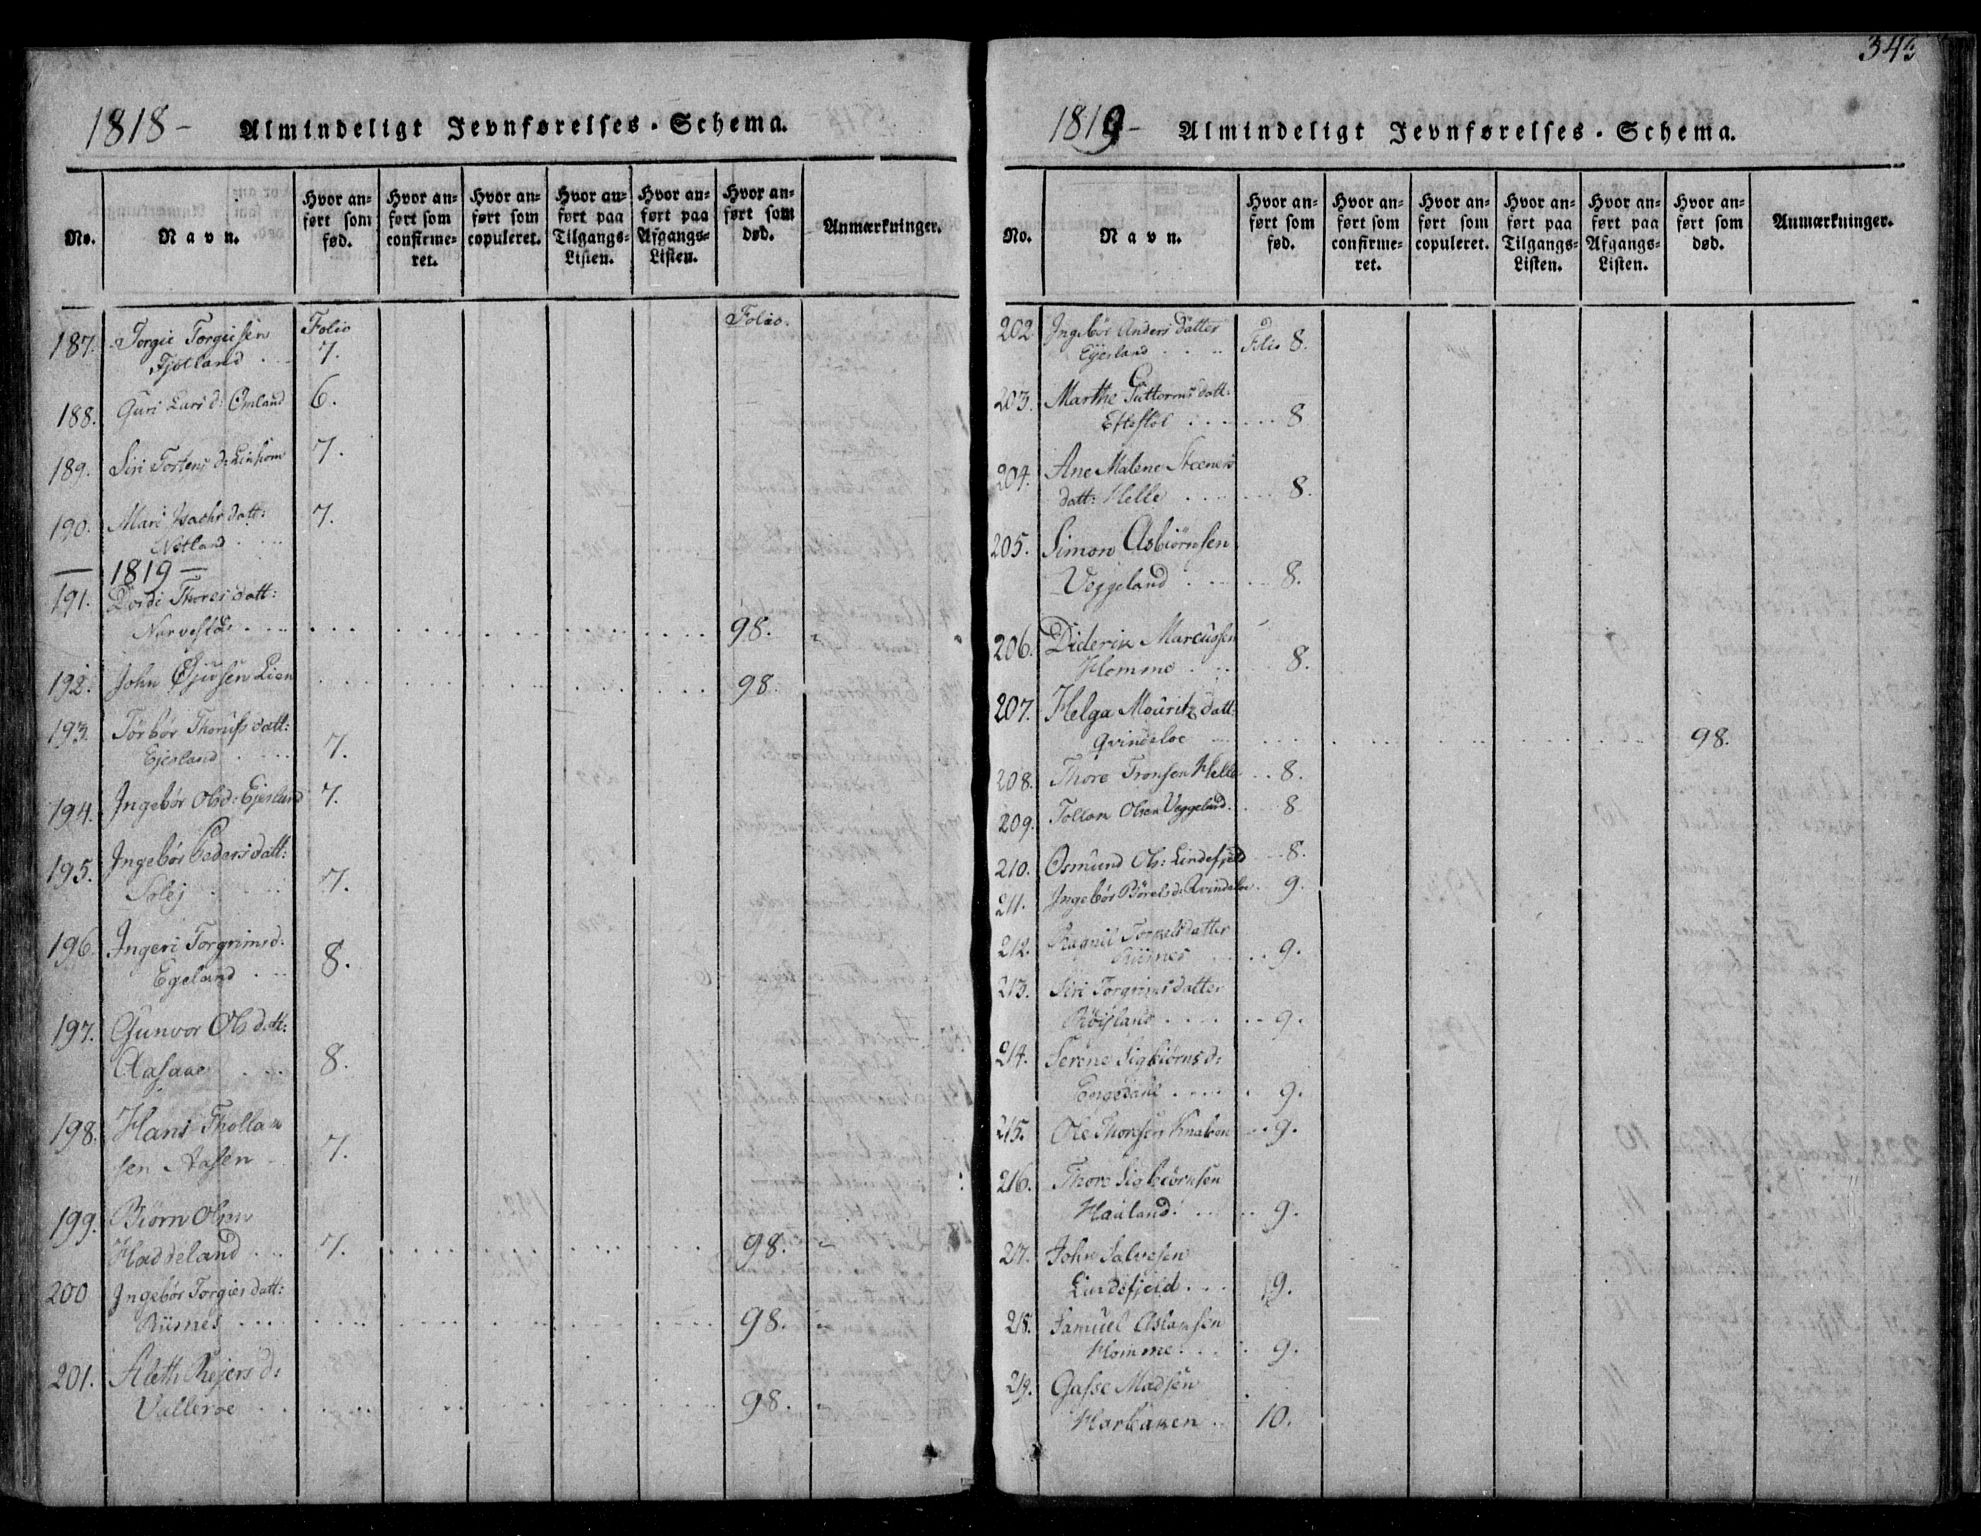 1818 –
Almindeligt Jevnførelses-Schema.
No.
Navn.
Hvor anført som fød.
Hvor anført som confirmeret.
Hvor anført som copuleret.
Hvor anført paa Tilgangs-Listen.
Hvor anført paa Afgangs-Listen.
Hvor anført som død.
Anmærkninger.
Folio
Folio.
187. Torgie Torgiesen
Fjotland . . 7.
188. Guri Lars d: Omland 6.
189. Siri Tostens d: 7.
190. Mari Isachs datt: 7.
Netland . . .
— 1819 —
191. Dordi Thores datt:
Narvestøe . . . . 98.
192. John Lien . . . 98.
193. Torbor datt:
Ejesland . . . 7.
194. Ingebor Ols d: Ejesland 7.
195. Ingebor Peders datt:
Solej . . . 7.
196. Ingeri Torgrims d.
Egeland . . . 8.
197. Gunvor Ols datt:
Aasaae . . . 8.
198. Hans Thollak
sen Aasen . . 7.
199. Biørn Olsen
Haddeland . . . 7. . . . 98.
200 Ingebor Torgies datt:
Riisnes . . . . 98.
201. Rejers d:
Valleroe . . . 98.
343
1819 –
Almindeligt Jevnførelses-Schema.
No.
Navn.
Hvor anført som fød.
Hvor anført som confirmeret.
Hvor anført som copuleret.
Hvor anført paa Tilgangs-Listen.
Hvor anført paa Afgangs-Listen.
Hvor anført som død.
Anmærkninger.
202 Ingebor Anders datter
Ejesland . . . Folio 8.
203. Marthe Guttorms datt:
Eftestøl . . . . . 8
204. Ane Malene Steeners
datt: Helle . . . . 8.
205. Simon Asbiørnsen
Veggeland . . . 8.
206. Diderik Marcussen
Homme . . . 8.
207. Helga Mouritz datt:
Qvindeloe . . . . 98.
208. Thore Tronsen Helle . . 8.
209. Tollak Olsen Veggeland . 8
210. Osmund Ols: Lindefjeld . . 8.
211. Ingebor d: Qvindeloe . 9.
212. Ragnil Torkelsdatter
Riisnes . . . 9.
213. Siri Torgrims datter
Røisland . . . . 9.
214. Serene Sigbiørns d:
. . . . 9.
215. Ole Thorsen Knaben . . 9.
216. Thore Sigbiørnsen
Hauland . . . 9.
217. John Salvesen
Lindefjeld . . . 9.
218. Samuel Aslaksen
Homme . . . 9.
219. Gasse Madsen
Harbakken . . 10.